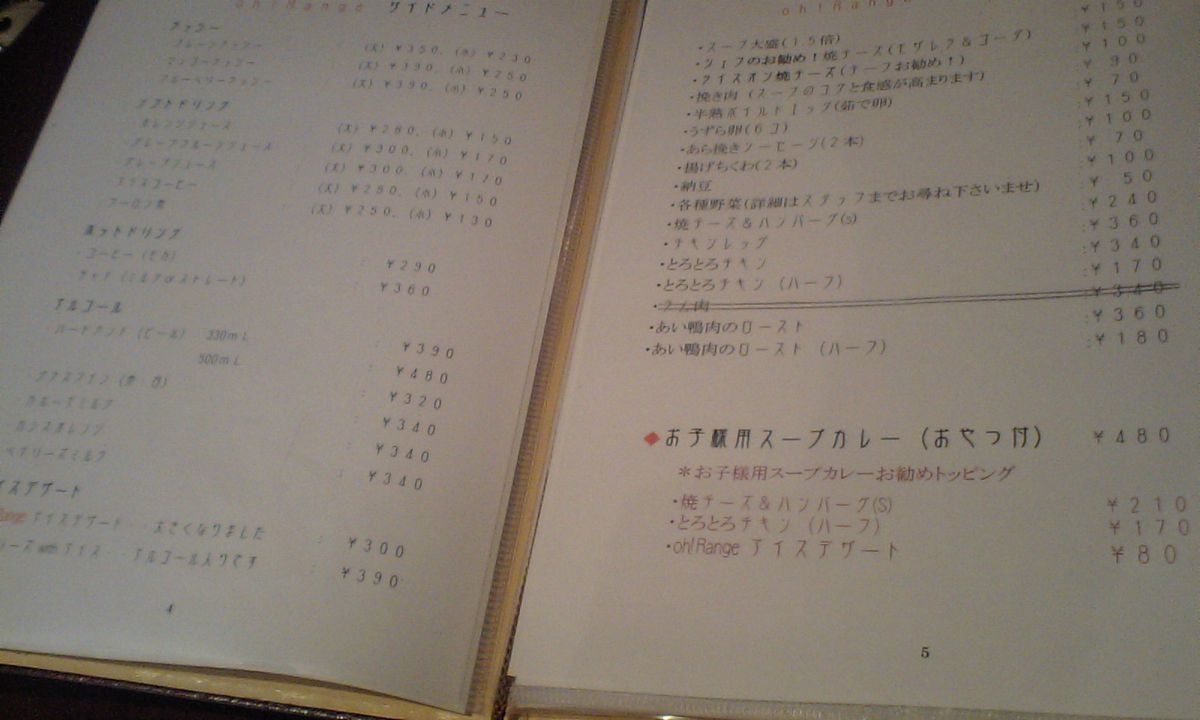 oh!Range サイドメニュー
ラッシー
プレーンラッシー : (大) ¥350、(小) ¥230
マンゴーラッシー : (大) ¥390、(小) ¥250
ブルーベリーラッシー : (大) ¥390、(小) ¥250
ソフトドリンク
オレンジジュース : (大) ¥280、(小) ¥150
グレープフルーツジュース : (大) ¥300、(小) ¥170
グレープジュース : (大) ¥300、(小) ¥170
アイスコーヒー : (大) ¥290、(小) ¥150
ウーロン茶 : (大) ¥250、(小) ¥130
ホットドリンク
・コーヒー(モカ) : ¥290
・チャイ(ミルク or ストレート) : ¥360
アルコール
・ハートランド(ビール) 330mL : ¥390
500mL : ¥480
・グラスワイン(赤・白) : ¥320
・カルーアミルク : ¥340
・カシスオレンジ : ¥340
ベイリーズミルク : ¥340
イスデザート
Range アイスデザート・・大きくなりました : ¥300
リーズ with アイス・・アルコール入りです : ¥390
4
oh!Range
¥150
・スープ大盛(1.5倍) ¥150
・シェフのお勧め!焼チーズ(モザレラ&ゴーダ) ¥100
・ライスオン焼チーズ(チーフお勧め!) ¥90
・挽き肉(スープのコクと食感が高まります) ¥70
・半熟ボイルドエッグ(茹で卵) :¥150
・うずら卵(6コ) :¥100
・あら挽きソーセージ(2本) :¥70
・揚げちくわ(2本) :¥100
・納豆 :¥50
・各種野菜(詳細はスタッフまでお尋ね下さいませ) :¥240
・焼チーズ&ハンバーグ(S) :¥360
・チキンレッグ :¥340
・とろとろチキン :¥170
・とろとろチキン(ハーフ) :¥340
・ラム肉 :¥360
・あい鴨肉のロースト :¥180
・あい鴨肉のロースト(ハーフ)
◆お子様用スープカレー(おやつ付) ¥480
*お子様用スープカレーお勧めトッピング
・焼チーズ&ハンバーグ(S) ¥210
・とろとろチキン(ハーフ) ¥170
・oh!Range アイスデザート ¥80
5